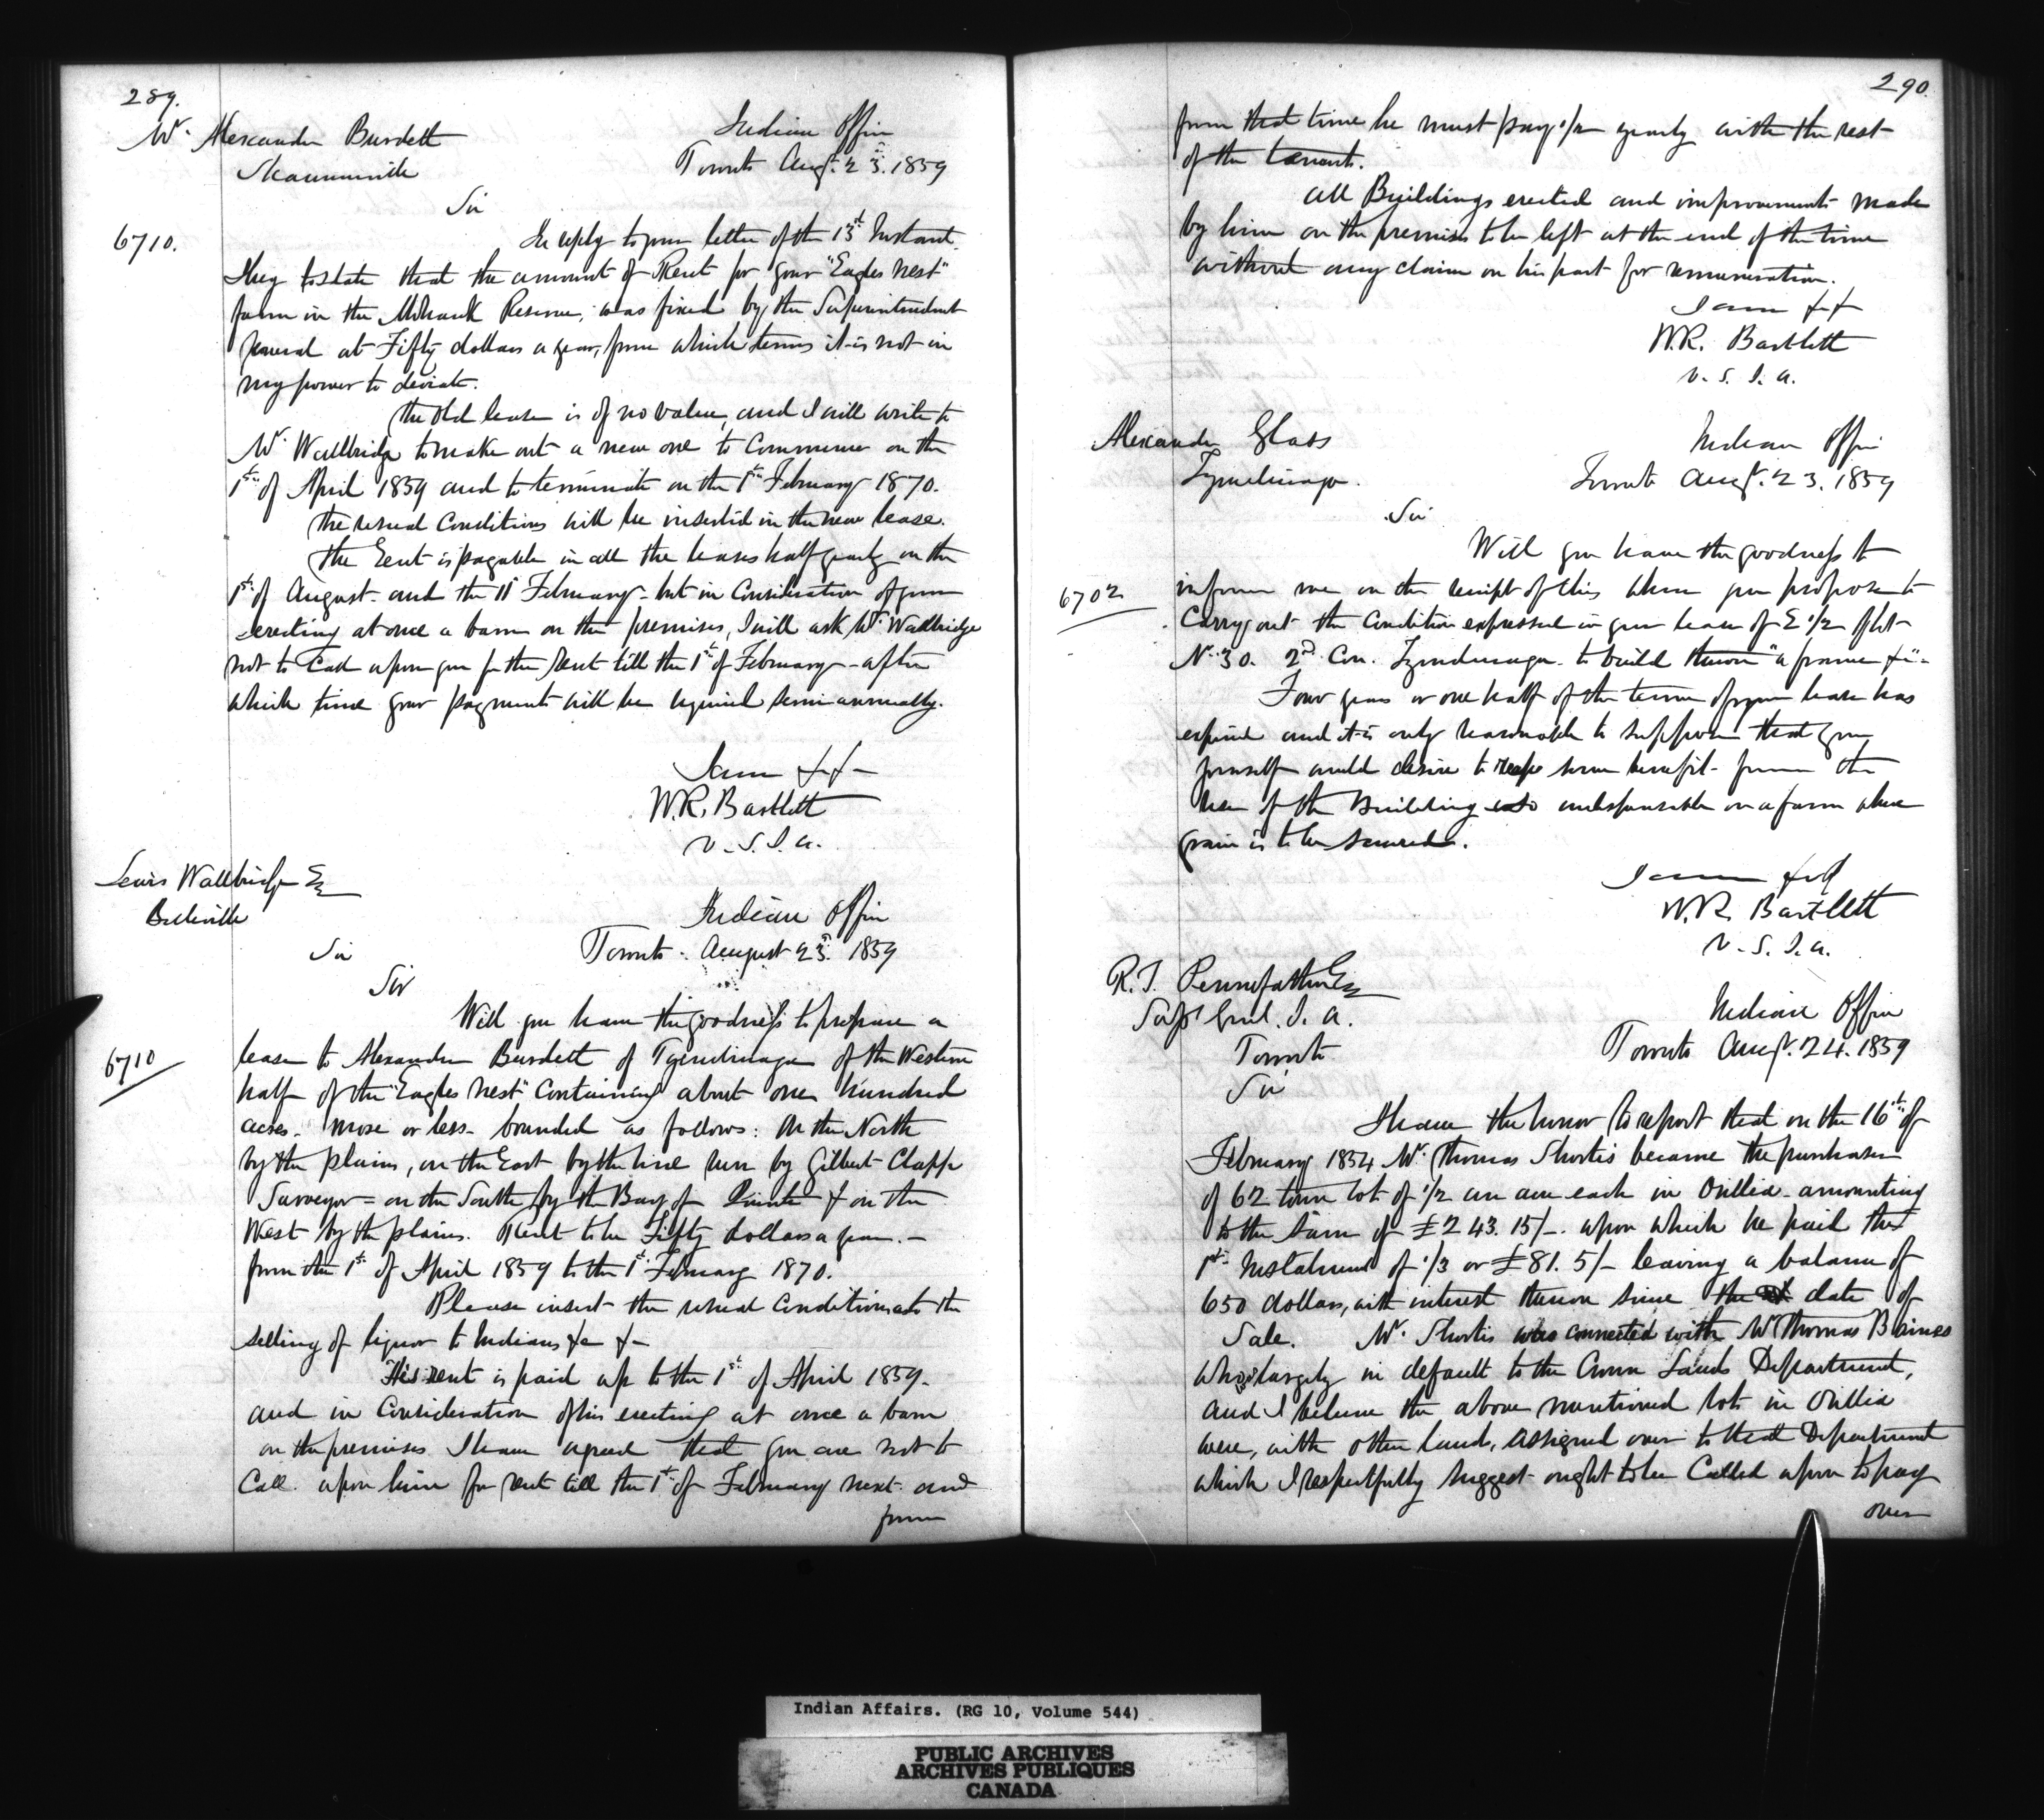 289.
Mr. Alexander Burdett
Shannonville
Indian Office
Toronto Augt. 23d. 1859
Sir
6710.
In reply to your letter of the 13th Instant
I beg to state that the amount of Rent for your "Eagles Nest"
farm in the Mohawk Reserve, was fixed by the Superintendent
General at Fifty dollars a year, from which terms it is not in
my power to deviate.
The old lease is of no value, and I will write to
Mr. Wallbridge to make out a new one to Commence on the
1st. of April 1859 and to terminate on the 1st. February 1870.
The usual Conditions will be inserted in the new lease.
The Rent is payable in all the leases half yearly on the
1st. of August and the 1st February - but in Consideration of your
erecting at once a barn on the premises, I will ask Mr. Wallbridge
not to Call upon you for the Rent till the 1st of February - after
which time your payments will be required semi annually.
I am &c &c
W.R. Bartlett
V. S. I. A.
Lewis Wallbridge Esq
Belleville
Indian Office
Toronto. August 23d. 1859
Sir
Sir
Will you have the goodness to prepare a
6710
lease to Alexander Burdett of Tyendinaga of the Western
half of the "Eagles Nest" Containing about one hundred
acres - more or less - bounded as follows: On the North
by the plains, on the East by the line run by Gilbert Clapp
Surveyor = on the South by the Bay of Quinte & on the
West by the plains. Rent to be Fifty dollars a year. -
from the 1st. of April 1859 to the 1st. February 1870.
Please insert the usual Conditions as to the
selling of liquor to Indians &c &c
His rent is paid up to the 1st of April 1859.
and in Consideration of his erecting at once a barn
on the premises I have agreed that you are not to
Call upon him for rent till the 1st. of February next and
from
290.
from that time he must pay 1/2 yearly with the rest
of the tenants.
All Buildings erected and improvements made
by him on the premises to be left at the end of the time
without any claim on his part for remuneration.
I am &c &c
W.R. Bartlett
V. S. I. A.
Alexander Glass
Tyendinaga.
Indian Office
Toronto Augt. 23. 1859
Sir
Will you have the goodness to
6702
inform me on the receipt of this when you propose to
Carry out the Condition expressed in your lease of E 1/2 of lot
No. 30. 2nd. Con. Tyendinaga to build thereon "a frame &c" -
Four years or one half of the term of your lease has
expired and it is only reasonable to suppose that you
yourself would desire to reap some benefit from the
use of the Building so indispensable on a farm where
grain is to be secured.
I am &c &c
W.R. Bartlett
V. S. I. A.
R. T. Pennefather Esq
Supt Genl. I. A.
Toronto
Indian Office
Toronto Augt. 24. 1859
Sir
I have the honor to report that on the 16th of
February 1854 Mr. Thomas Shortis became the purchaser
of 62 town lots of 1/2 an acre each in Orillia - amounting
to the Sum of £243. 15/-. upon which he paid the
1st. Instalment of 1/3 or £81. 5/- leaving a balance of
650 dollars, with interest thereon since the date of
Sale. Mr. Shortis was connected with Mr Thomas Baines
who is largely in default to the Crown Lands Department,
and I believe the above mentioned lots in Orillia
were, with other lands, assigned over to that Department
which I respectfully suggest ought to be Called upon to pay
over
Indian Affairs. (RG 10, Volume 544)
PUBLIC ARCHIVES
ARCHIVES PUBLIQUES
CANADA